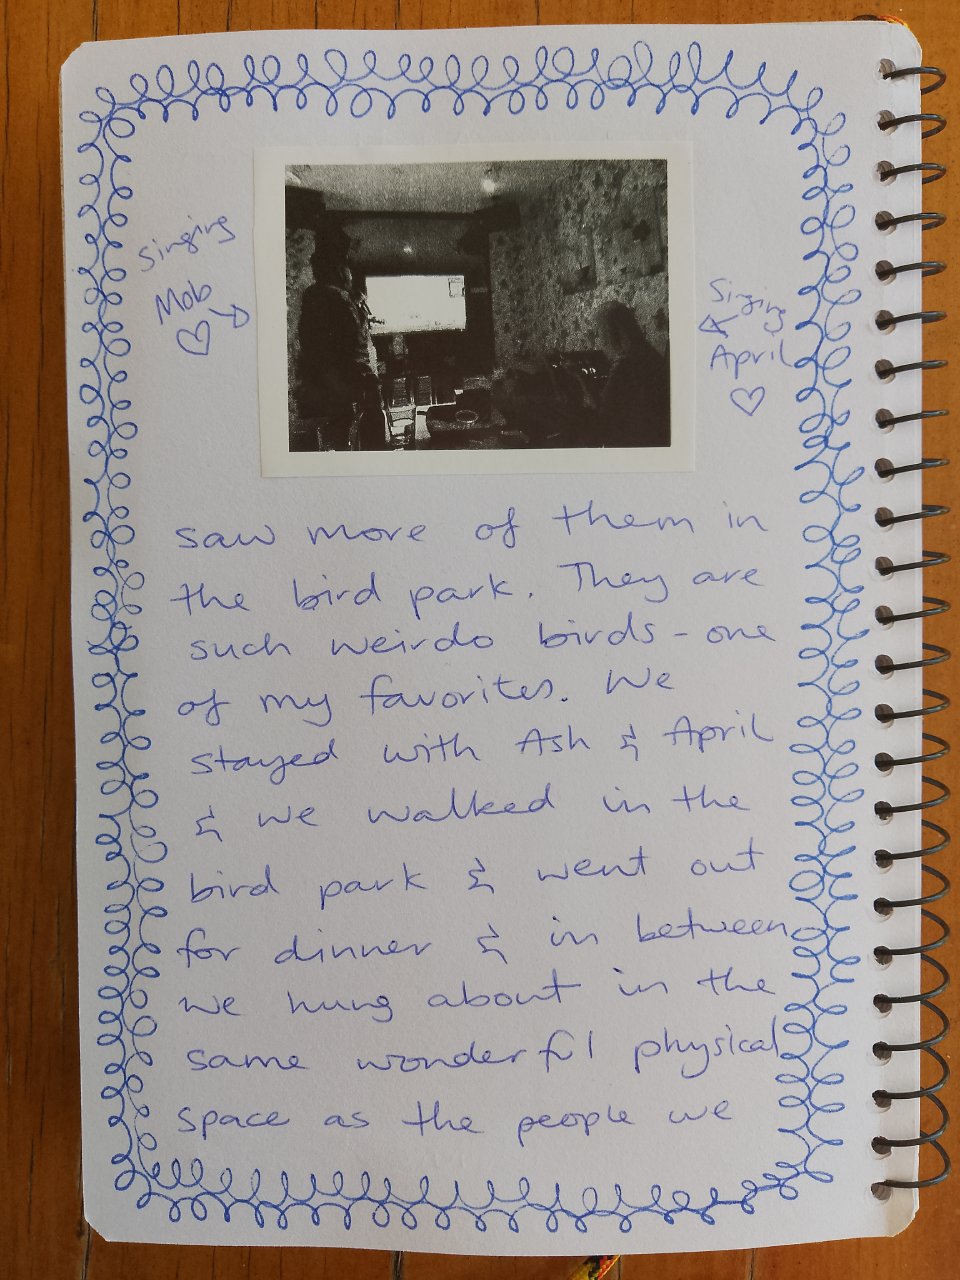 Singing
Mob
♡
Singing
April
♡
saw more of them in
the bird park. They are
such weirdo birds - one
of my favorites. We
stayed with Ash & April
& we walked in the
bird park & went out
for dinner & in between
we hung about in the
same wonderful physical
space as the people we